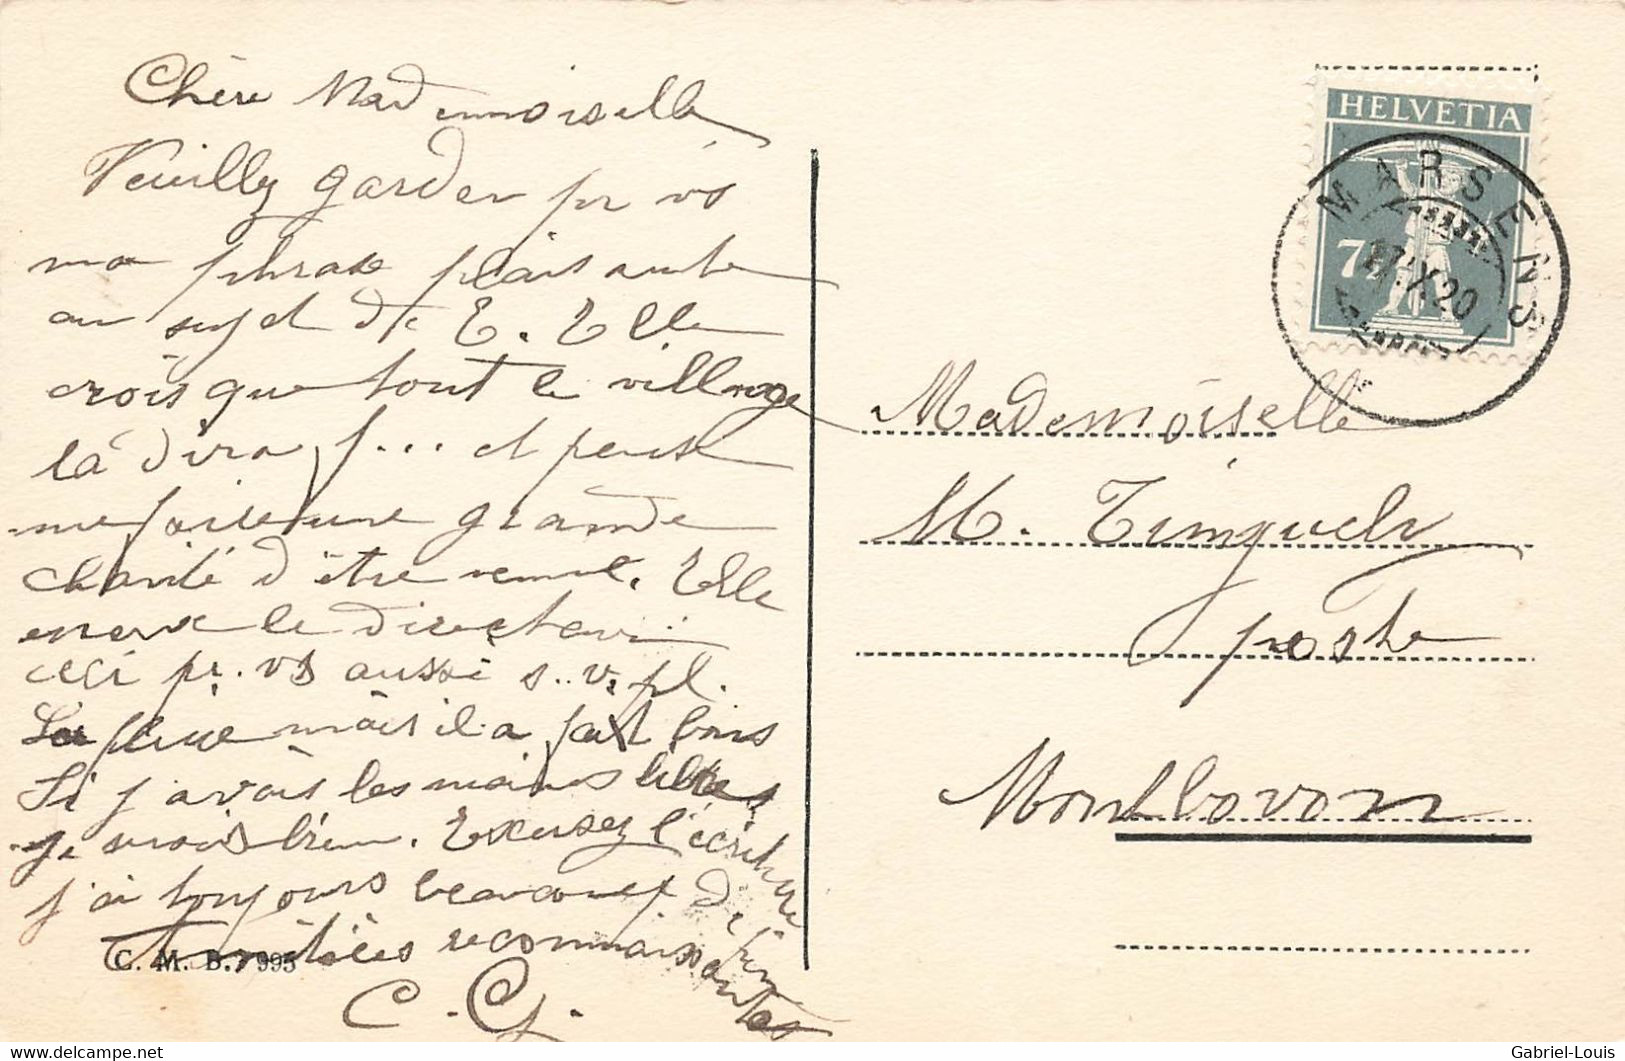 Chère Mademoiselle
Veuillez garder pr vs
ma phrase plaisante
au sujet de E. Elle
crois que tout le village
là dira f... et peut
me faire une grande
charité d'être venue. Elle
énerve le directeur
ceci pr. vs aussi s.v.pl.
mais il a fait bons
Si j'avais les mains libres
je serais bien. Excusez l'écriture
j'ai toujours beaucoup de
reconnaissantes
C. G.
C. M. B. 995
HELVETIA
7½
MARSENS
X 20
Mademoiselle
M. Tinguely
poste
Montbovon
Gabriel-Louis